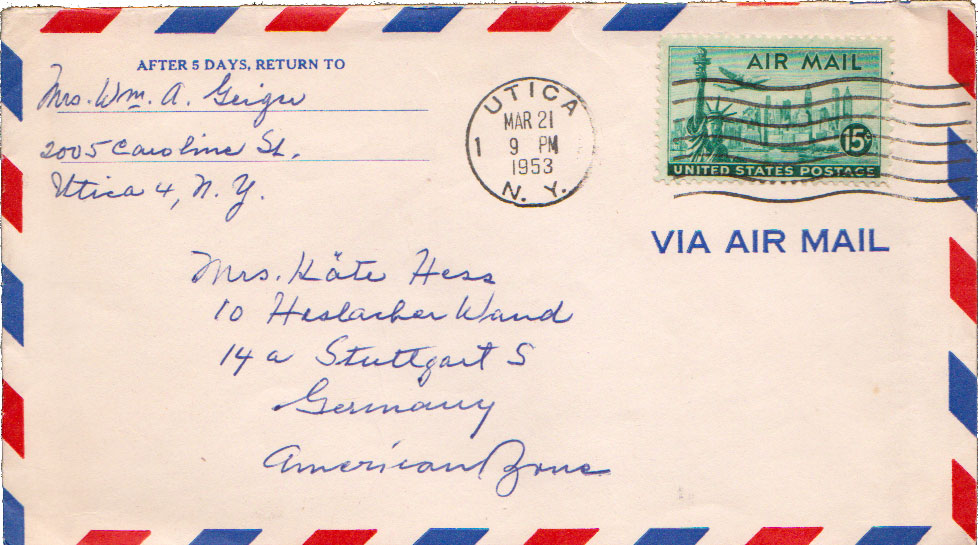 AFTER 5 DAYS, RETURN TO
Mrs. Wm. A. Geiger
2005 Caroline St.
Utica 4, N.Y.
UTICA
MAR 21
1 9 PM
1953
N. Y.
AIR MAIL
15¢
UNITED STATES POSTAGE
VIA AIR MAIL
Mrs. Käte Hess
10 Heslacher Wand
14a Stuttgart S
Germany
American Zone